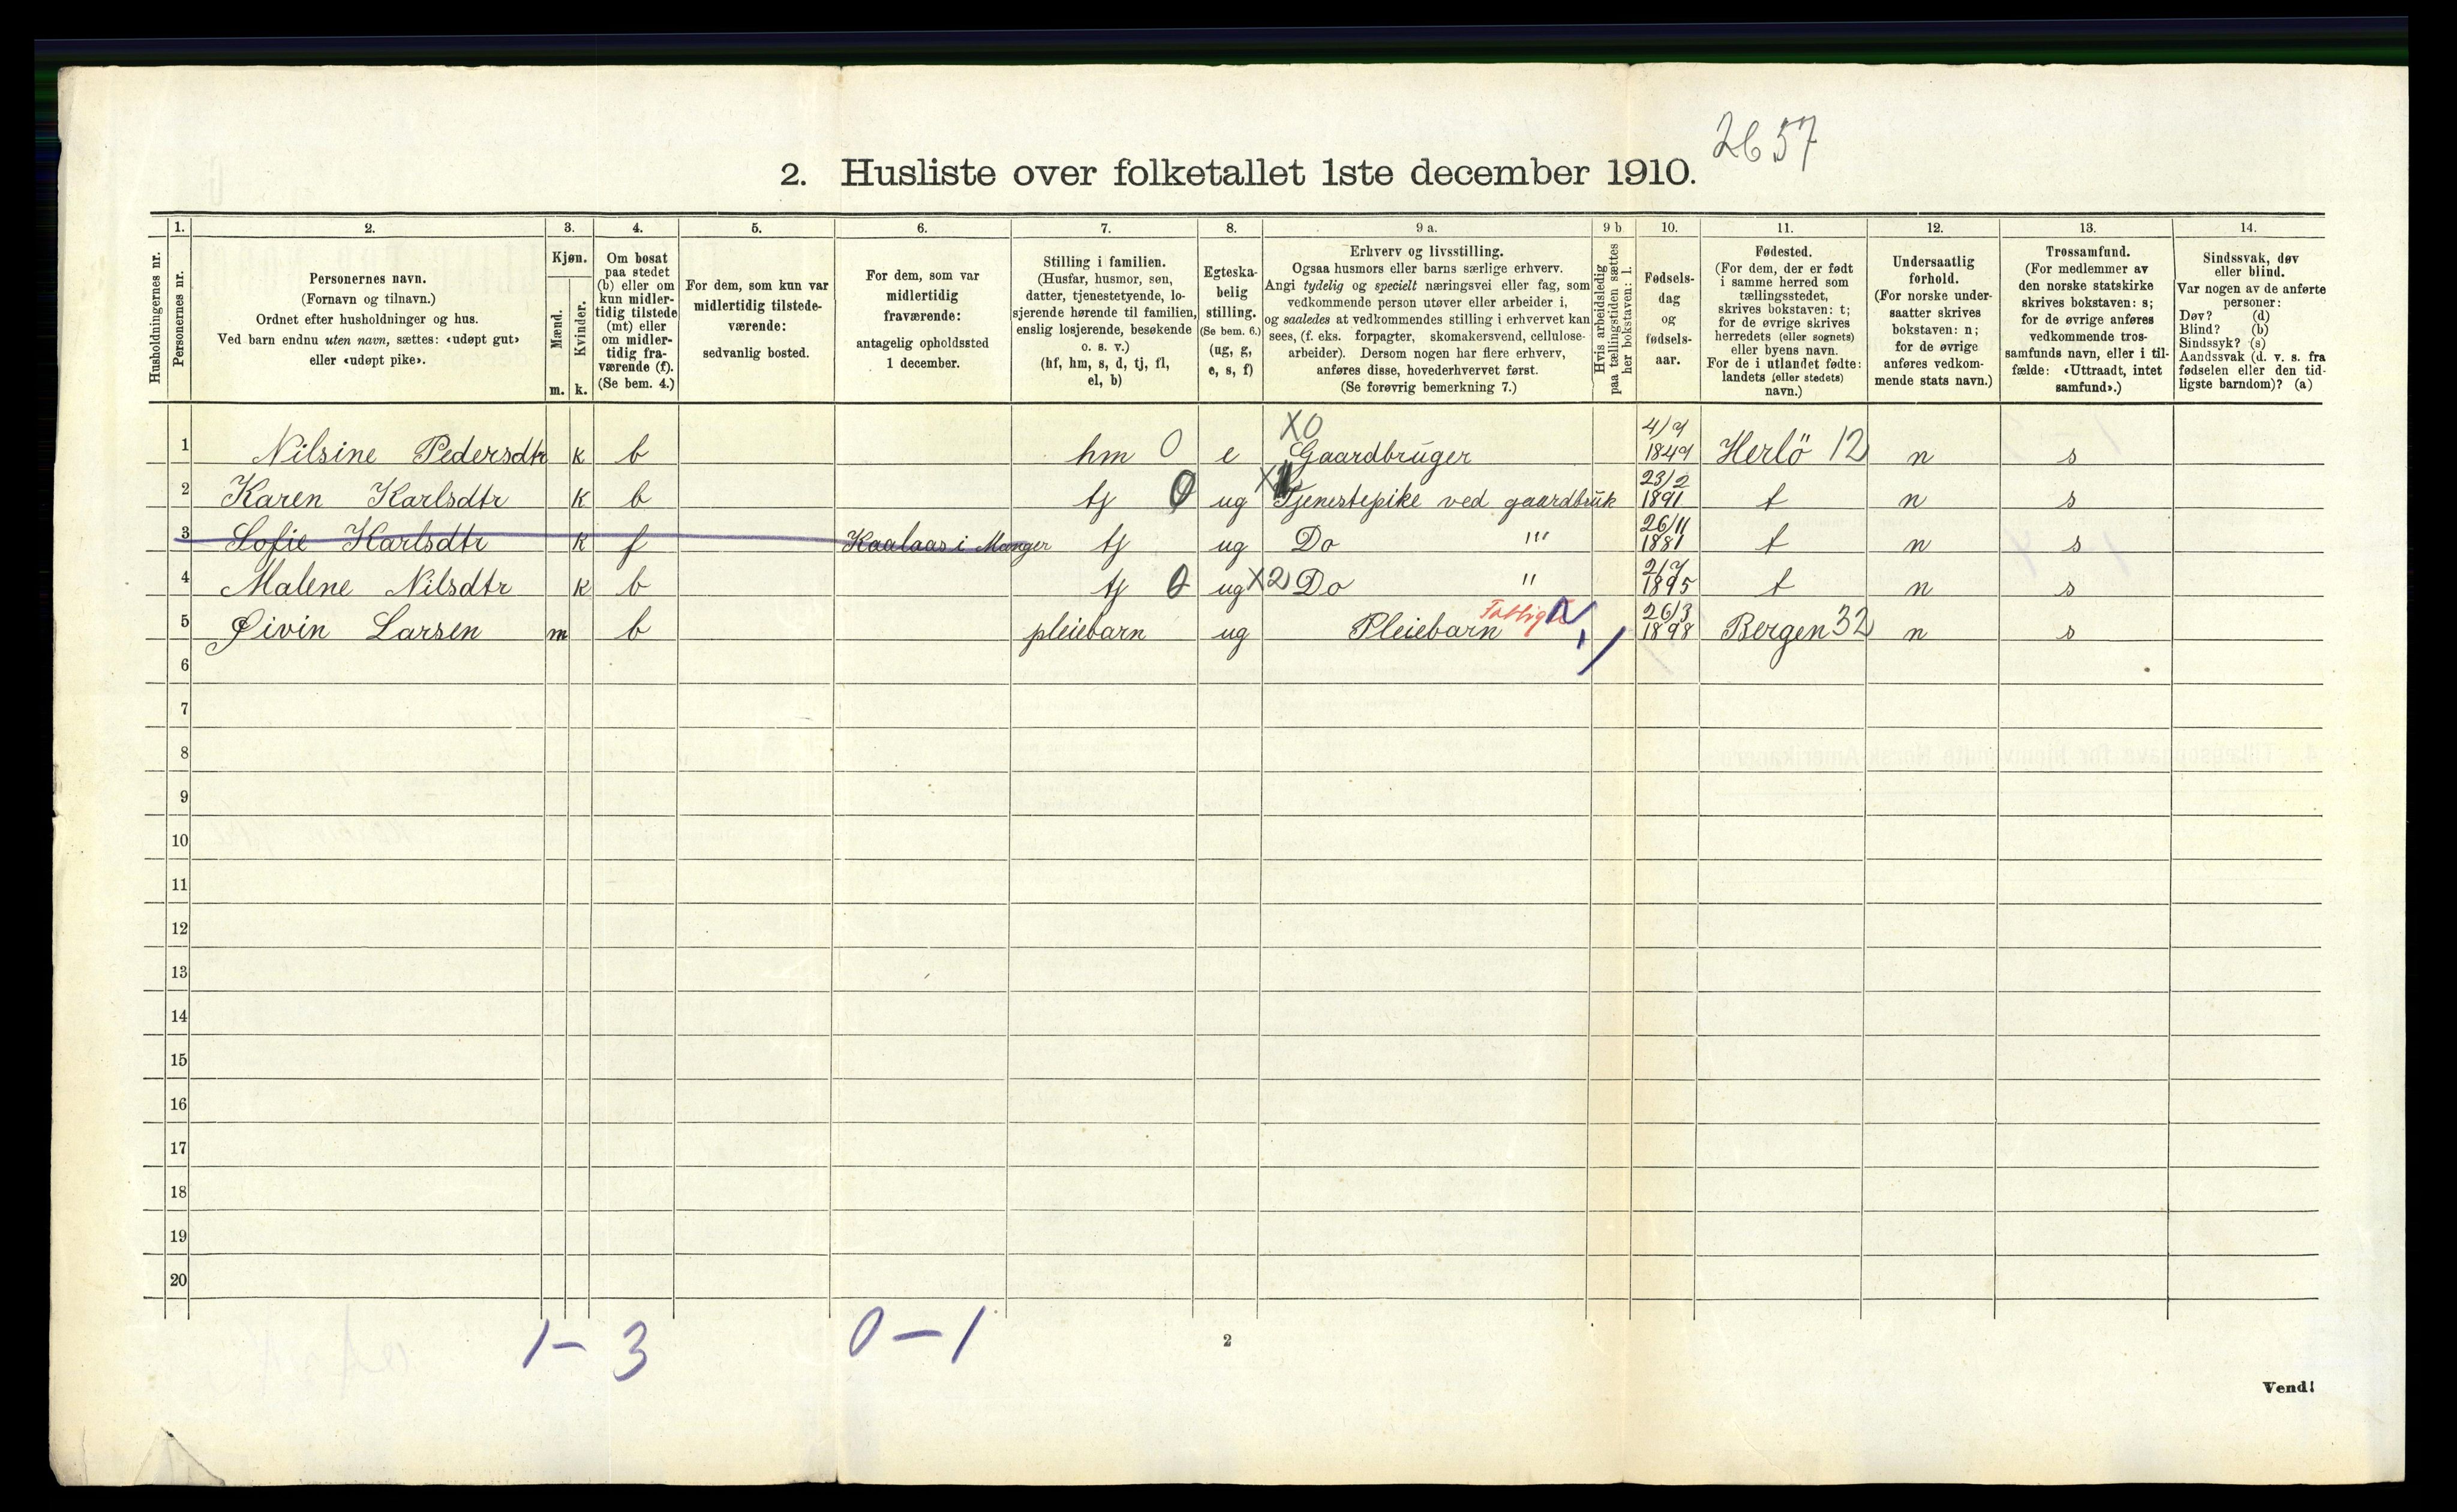 2657
2. Husliste over folketallet 1ste december 1910.
Husholdningernes nr.
1.
Personernes nr.
2.
Personernes navn.
(Fornavn og tilnavn.)
Ordnet efter husholdninger og hus.
Ved barn endnu uten navn, sættes: «udøpt gut»
eller «udøpt pike».
3.
Kjøn.
Mænd.
Kvinder.
m. k.
4.
Om bosat
paa stedet
(b) eller om
kun midler-
tidig tilstede
(mt) eller
om midler-
tidig fra-
værende (f).
(Se bem. 4.)
5.
For dem, som kun var
midlertidig tilstede-
værende:
sedvanlig bosted.
6.
For dem, som var
midlertidig
fraværende:
antagelig opholdssted
1 december.
7.
Stilling i familien.
(Husfar, husmor, søn,
datter, tjenestetyende, lo-
sjerende hørende til familien,
enslig losjerende, besøkende
o. s. v.)
(hf, hm, s, d, tj, fl,
el, b)
8.
Egteska-
belig
stilling.
(Se bem. 6.)
(ug, g,
e, s, f)
9 a.
Erhverv og livsstilling.
Ogsaa husmors eller barns særlige erhverv.
Angi tydelig og specielt næringsvei eller fag, som
vedkommende person utøver eller arbeider i,
og saaledes at vedkommendes stilling i erhvervet kan
sees, (f. eks. forpagter, skomakersvend, cellulose-
arbeider). Dersom nogen har flere erhverv,
anføres disse, hovederhvervet først.
(Se forøvrig bemerkning 7.)
9 b
Hvis arbeidsledig
paa tællingstiden sættes
her bokstaven: l.
10.
Fødsels-
dag
og
fødsels-
aar.
11.
Fødested.
(For dem, der er født
i samme herred som
tællingsstedet,
skrives bokstaven: t;
for de øvrige skrives
herredets (eller sognets)
eller byens navn.
For de i utlandet fødte:
landets (eller stedets)
navn.)
12.
Undersaatlig
forhold.
(For norske under-
saatter skrives
bokstaven: n;
for de øvrige
anføres vedkom-
mende stats navn.)
13.
Trossamfund.
(For medlemmer av
den norske statskirke
skrives bokstaven: s;
for de øvrige anføres
vedkommende tros-
samfunds navn, eller i til-
fælde: «Uttraadt, intet
samfund».)
14.
Sindssvak, døv
eller blind.
Var nogen av de anførte
personer:
Døv? (d)
Blind? (b)
Sindssyk? (s)
Aandssvak (d. v. s. fra
fødselen eller den tid-
ligste barndom)? (a)
1 Nilsine Pedersdtr k b hm 0 e X0 Gaardbruger 4/9 1849 Herlö 12 n s
2 Karen Karlsdtr k b tj 0 ug X Tjenestepike ved gaardbruk 23/2 1891 t n s
3 Sofie Karlsdtr k f Kaalaas i Manger tj ug Do "" 26/11 1881 t n s
4 Malene Nilsdtr k b tj 0 ug X2 Do " 2/7 1895 t n s
5 Øivin Larsen m b pleiebarn ug Pleiebarn 26/3 1898 Bergen 32 n s
6
7
8
9
10
11
12
13
14
15
16
17
18
19
20
1 – 3 0 – 1
2
Vend!